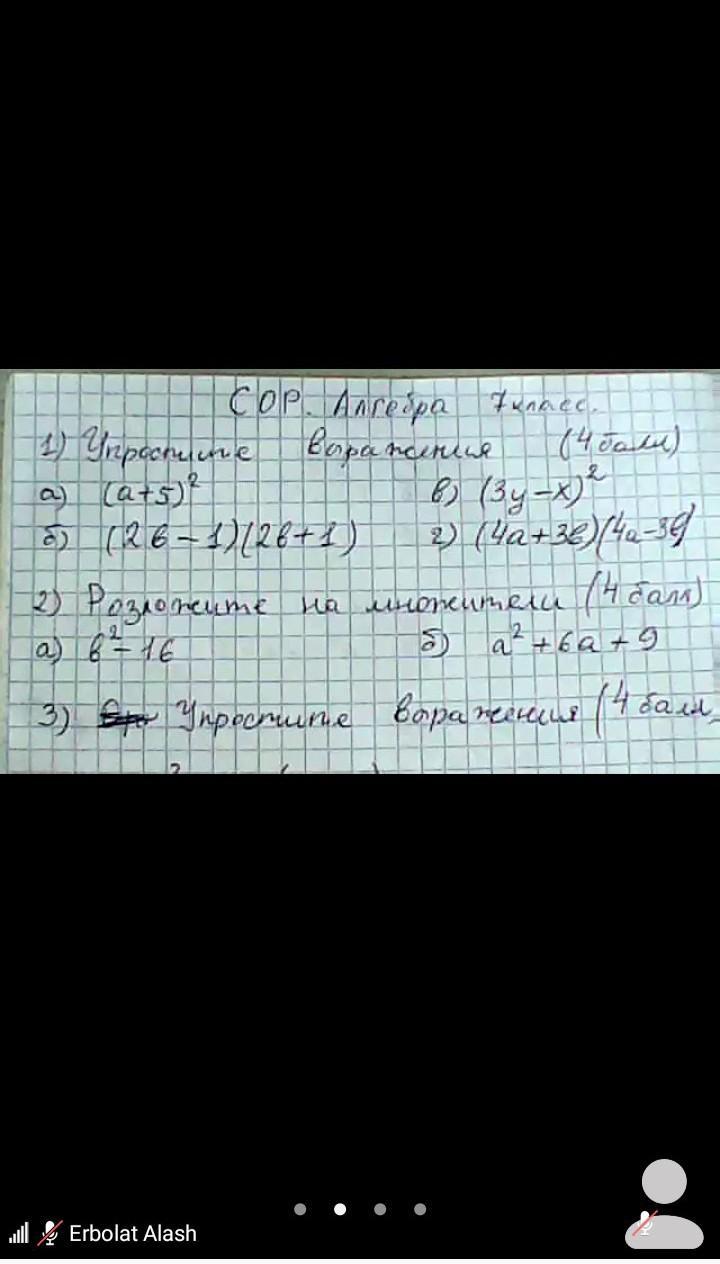 СОР. Алгебра 7 класс.
1) Упростите выражения (4 балл)
а) (a+5)² в) (3y-x)²
б) (2в-1)(2в+1) г) (4a+3в)(4a-3в)
2) Розложите на множители (4 балл)
а) в²-16 б) a²+6a+9
3) Упростите выражения (4 балл
Erbolat Alash